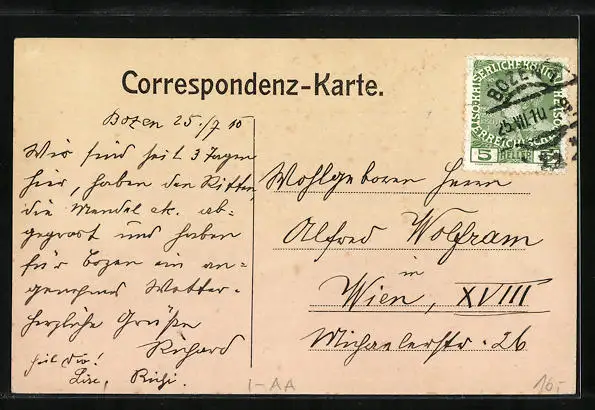 Correspondenz-Karte.
Bozen 25./7 10
Wir sind seit 3 Tagen
hier, haben den Ritten,
die Mendel etc. ab=
gegrast und haben
für Bozen ein an=
genehmes Wetter.
Herzliche Grüße
Richard
heil Dir!
Lise, Richi.
KAISERLICHE KÖNIGL
ÖSTERREICHISCHE
5 HELLER
BOZEN
25.VII.10
Wohlgeboren Herrn
Alfred Wolfram
in
Wien, XVIII
Michaelerstr. 26
I-AA
10,-